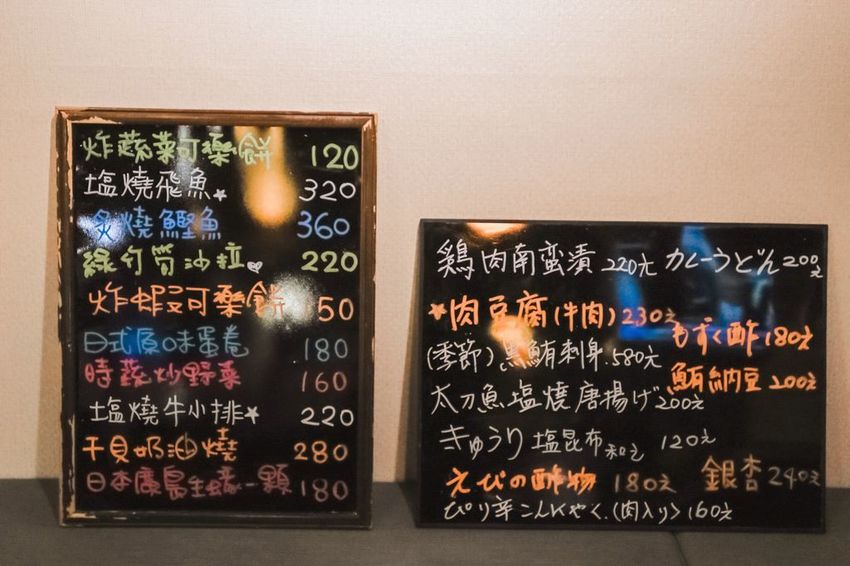 炸蔬菜可樂餅 120
塩燒飛魚 320
炙燒鰹魚 360
綠竹筍沙拉 220
炸蝦可樂餅 150
日式原味蛋卷 180
時蔬炒野菜 160
塩燒牛小排 220
干貝奶油燒 280
日本廣島生蠔一顆 180
鶏肉南蛮漬 220元 カレーうどん 200元
肉豆腐(牛肉) 230元
もずく酢 180元
(季節)黒鮪刺身 580元
鮪納豆 200元
太刀魚塩焼唐揚げ 200元
きゅうり塩昆布和え 120元
えびの酢物 180元 銀杏 240元
ぴり辛こんにゃく(肉入り) 160元